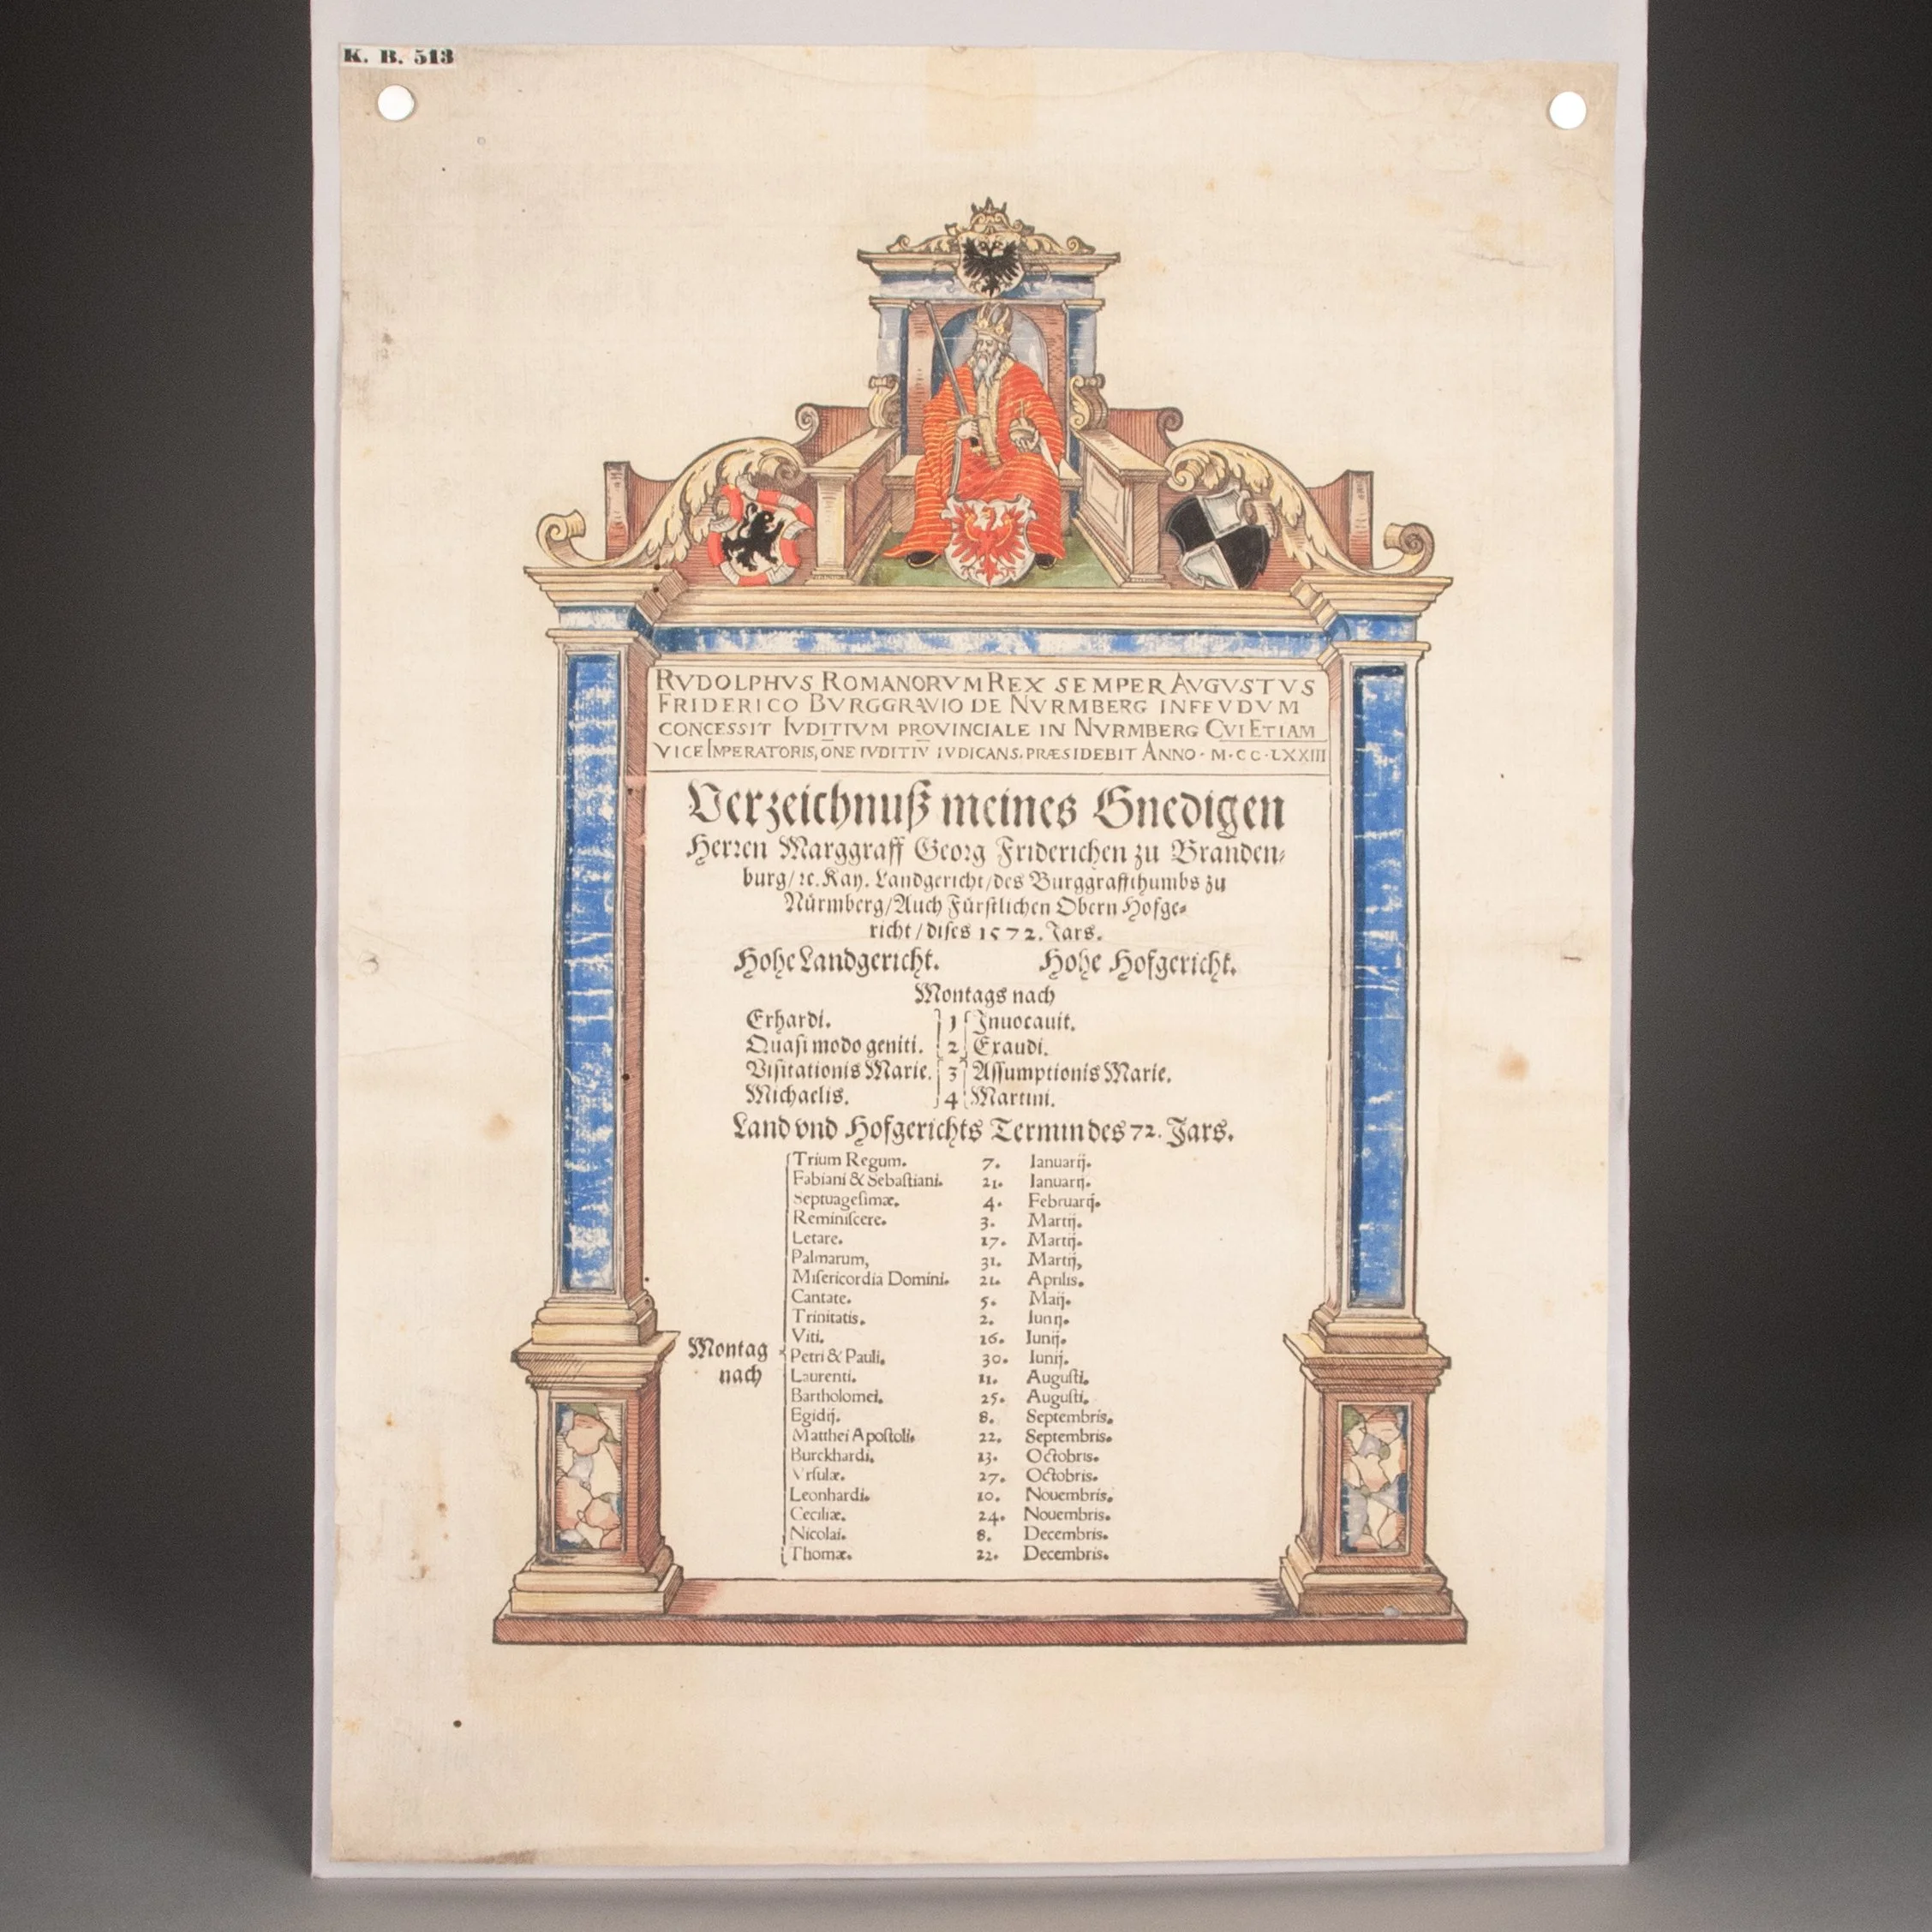 K. B. 513
RVDOLPHVS ROMANORVM REX SEMPER AVGVSTVS
FRIDERICO BVRGGRAVIO DE NVRMBERG INFEVDVM
CONCESSIT IVDITIVM PROVINCIALE IN NVRMBERG CVI ETIAM
VICE IMPERATORIS, OÑE IVDITIV̄ IVDICANS, PRÆSIDEBIT ANNO · M·CC·LXXIII
Verzeichnuß meines Gnedigen
Herren Marggraff Georg Friderichen zu Branden-
burg/ ꝛc. Kay. Landgericht/ des Burggraffthumbs zu
Nürmberg/ Auch Fürstlichen Obern Hofge-
richt/ dises 1572. Jars.
Hohe Landgericht. Hohe Hofgericht.
Montags nach
Erhardi. 1 Inuocauit.
Quasi modo geniti. 2 Exaudi.
Visitationis Marie. 3 Assumptionis Marie.
Michaelis. 4 Martini.
Land vnd Hofgerichts Termin des 72. Jars.
Trium Regum. 7. Ianuarij.
Fabiani & Sebastiani. 21. Ianuarij.
Septuagesimæ. 4. Februarij.
Reminiscere. 3. Martij.
Letare. 17. Martij.
Palmarum, 31. Martij,
Misericordia Domini. 21. Aprilis.
Cantate. 5. Maij.
Trinitatis. 2. Iunij.
Viti. 16. Iunij.
Montag nach
Petri & Pauli. 30. Iunij.
Laurenti. 11. Augusti.
Bartholomei. 25. Augusti.
Egidij. 8. Septembris.
Matthei Apostoli. 22. Septembris.
Burckhardi. 13. Octobris.
Vrsulæ. 27. Octobris.
Leonhardi. 10. Nouembris.
Ceciliæ. 24. Nouembris.
Nicolai. 8. Decembris.
Thomæ. 22. Decembris.